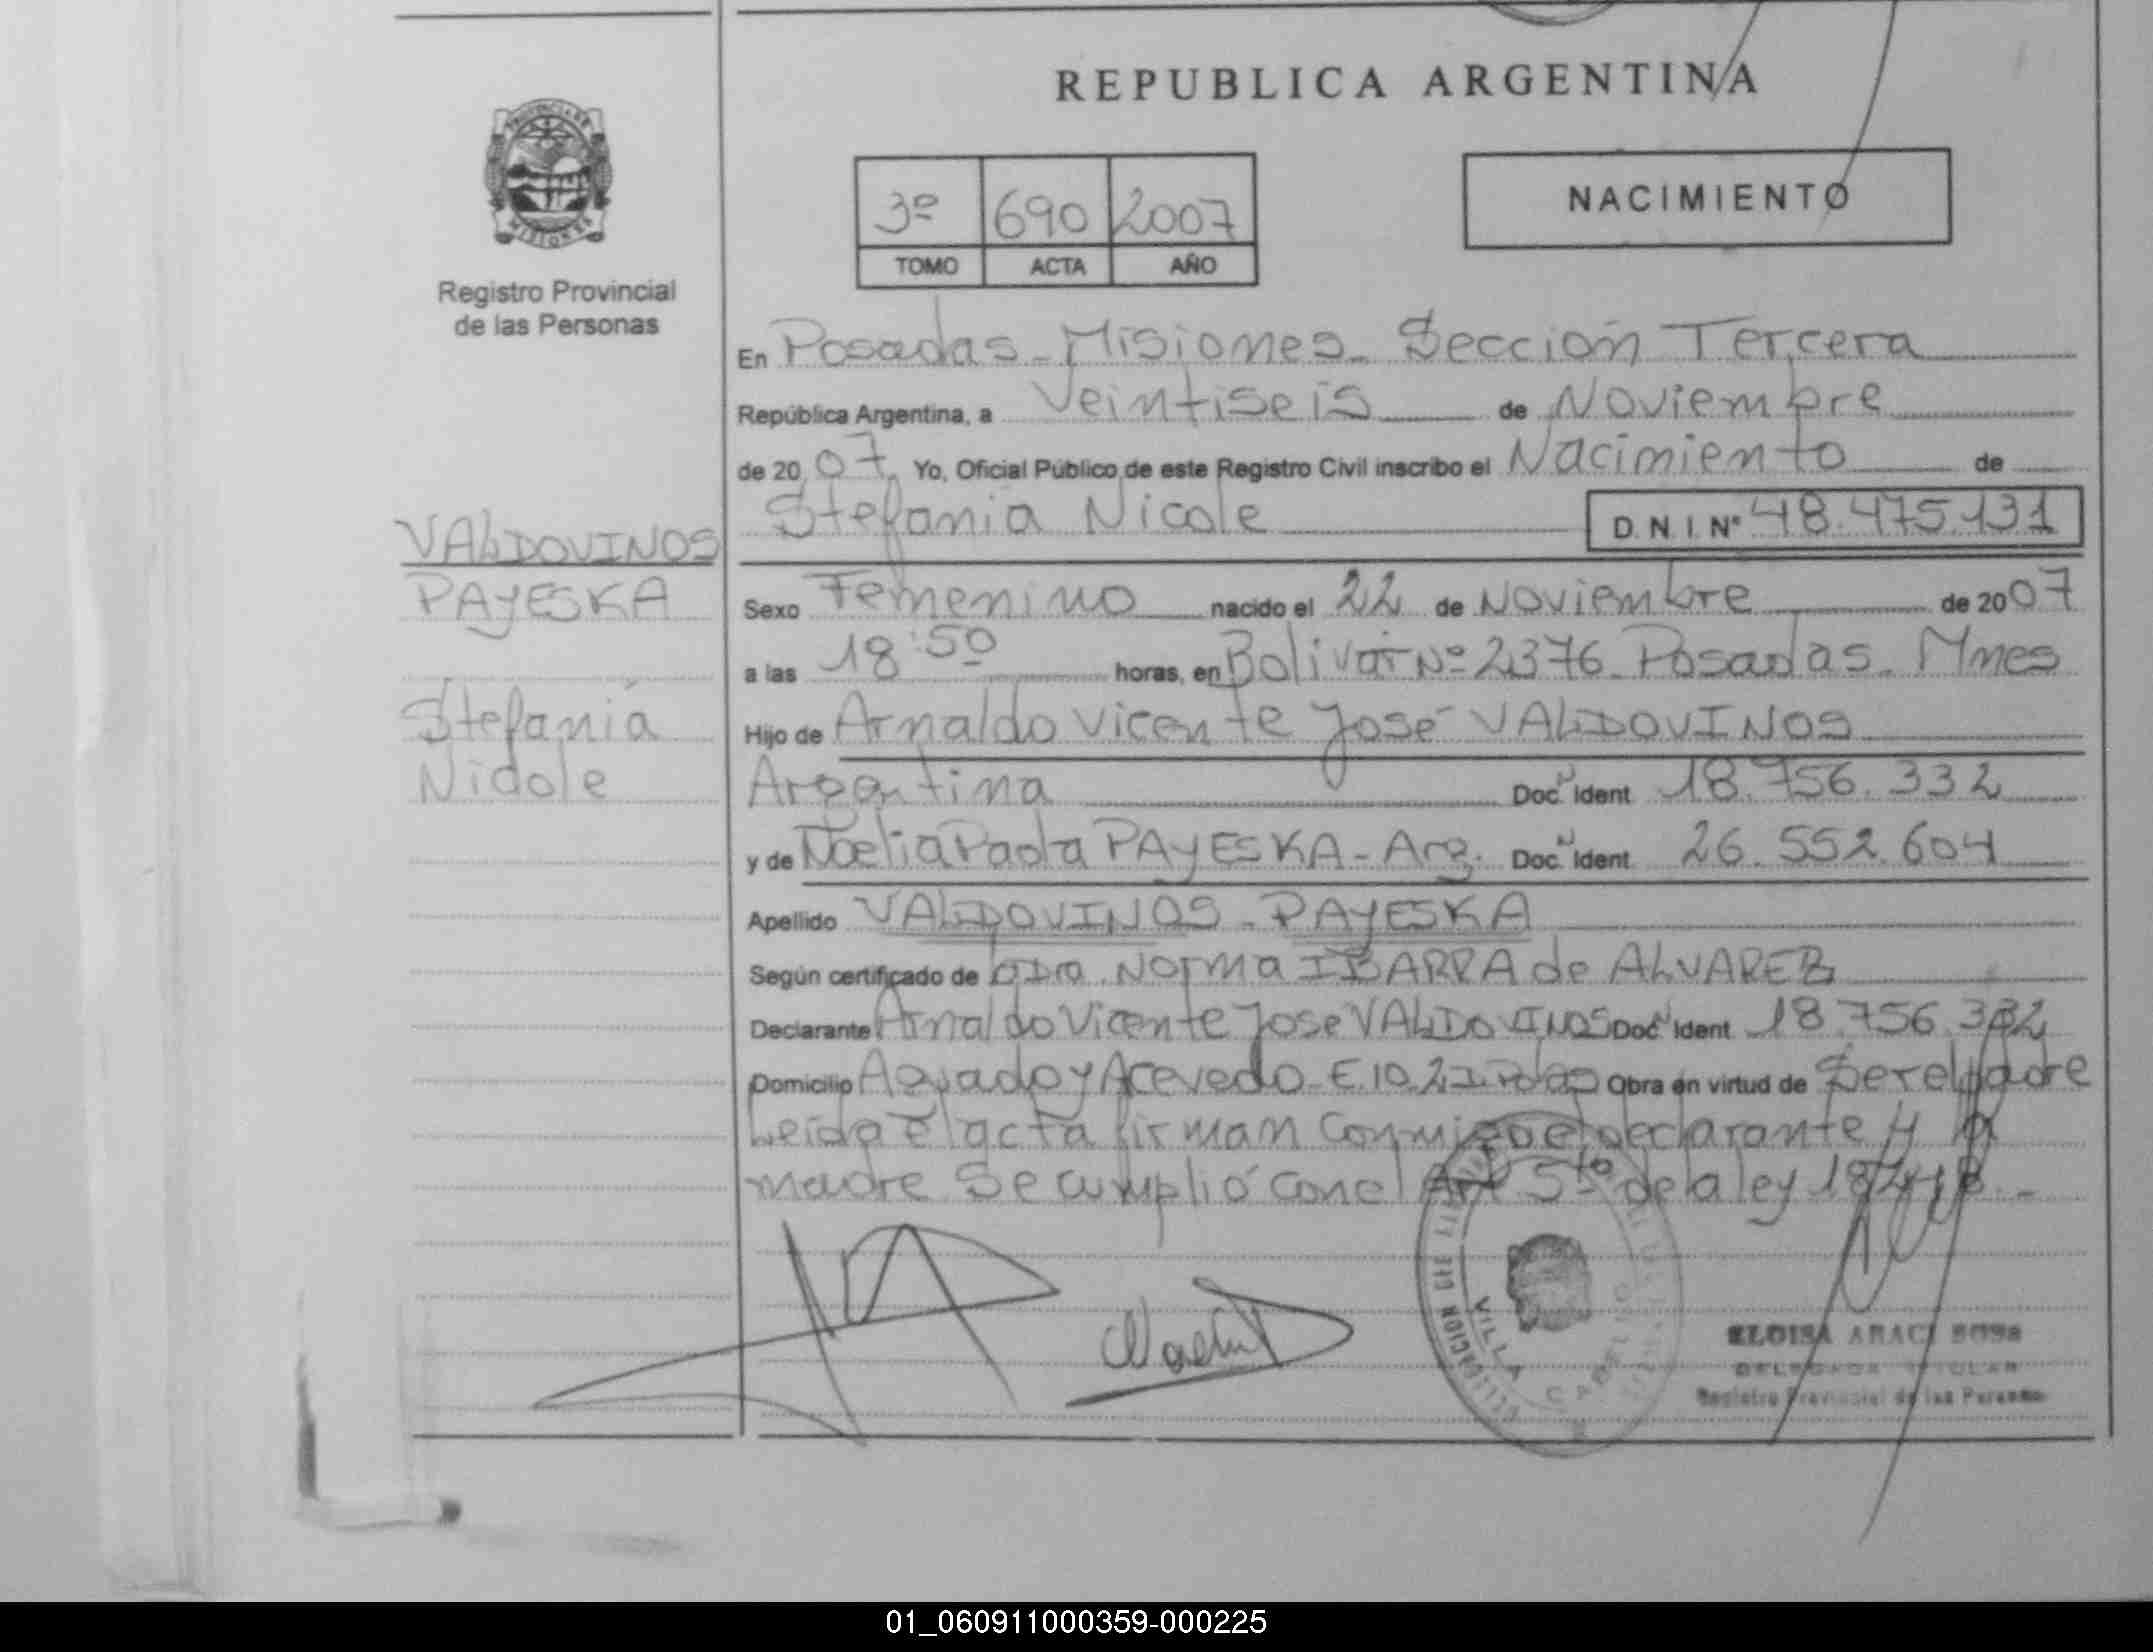 REPUBLICA ARGENTINA
PROVINCIA DE
MISIONES
Registro Provincial
de las Personas
3º 690 2007
TOMO ACTA AÑO
NACIMIENTO
En Posadas - Misiones - Sección Tercera
República Argentina, a Veintiseis de Noviembre
de 2007. Yo, Oficial Público de este Registro Civil inscribo el Nacimiento de
Stefania Nicole D.N.I. Nº 48.475.131
VALDOVINOS
PAYESKA
Stefanía
Nicole
Sexo Femenino nacido el 22 de Noviembre de 2007
a las 18:50 horas, en Bolivar Nº 2376 Posadas - Mnes
Hijo de Arnaldo Vicente José VALDOVINOS
Argentina Doc. Nº Ident 18.756.332
y de Noelia Paola PAYESKA - Arg. Doc. Nº Ident 26.552.604
Apellido VALDOVINOS - PAYESKA
Según certificado de Dra. Norma IBARRA de ALVAREZ
Declarante Arnaldo Vicente Jose VALDOVINOS Doc. Nº Ident 18.756.332
Domicilio Aguado y Acevedo E. 10 Obra en virtud de Ser el padre
Leída el acta firman conmigo el declarante y la
madre Se cumplió con el Art 5to de la ley
VILLA CABELLO
ELOISA ARACI
DELEGADA TITULAR
Registro Provincial de las Personas
01_060911000359-000225